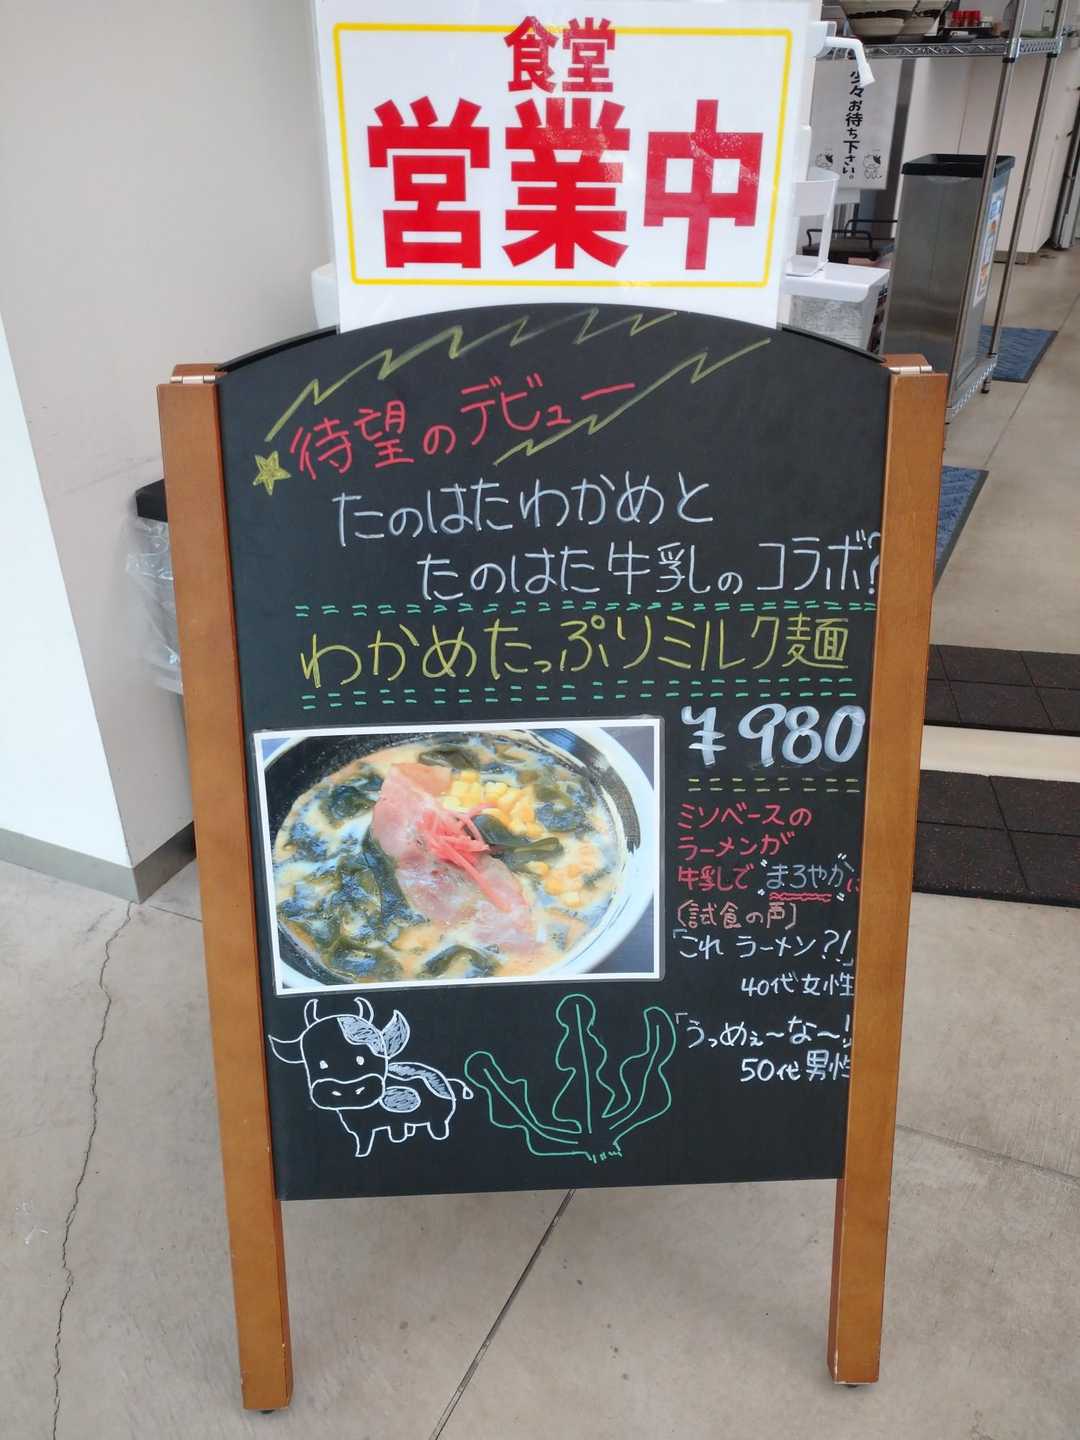 食堂
営業中
少々お待ち下さい。
待望のデビュー
たのはたわかめと
たのはた牛乳のコラボ?
わかめたっぷりミルク麺
¥980
ミソベースの
ラーメンが
牛乳で"まろやか"に
〔試食の声〕
「これ ラーメン?!」
40代女性
「うっめぇ〜な〜!」
50代男性